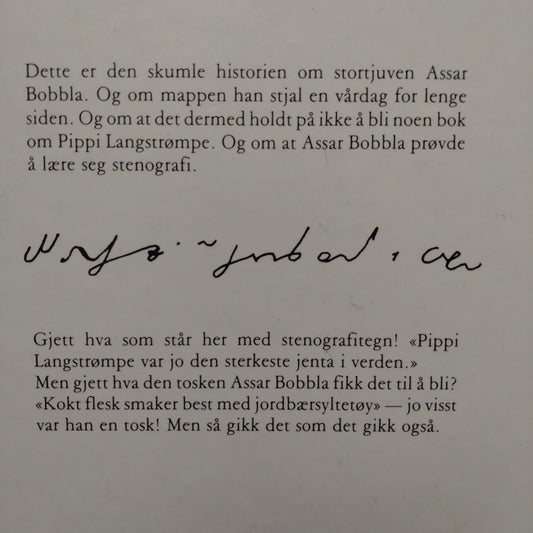 Dette er den skumle historien om stortjuven Assar
Bobbla. Og om mappen han stjal en vårdag for lenge
siden. Og om at det dermed holdt på ikke å bli noen bok
om Pippi Langstrømpe. Og om at Assar Bobbla prøvde
å lære seg stenografi.
Gjett hva som står her med stenografitegn! «Pippi
Langstrømpe var jo den sterkeste jenta i verden.»
Men gjett hva den tosken Assar Bobbla fikk det til å bli?
«Kokt flesk smaker best med jordbærsyltetøy» — jo visst
var han en tosk! Men så gikk det som det gikk også.